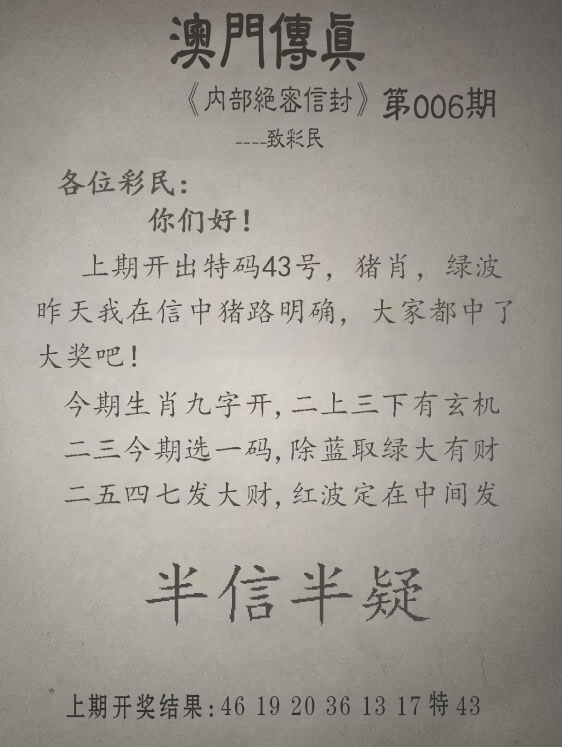 澳門傳眞
《内部絕密信封》第006期
----致彩民
各位彩民：
你们好！
上期开出特码43号，猪肖，绿波
昨天我在信中猪路明确，大家都中了
大奖吧！
今期生肖九字开,二上三下有玄机
二三今期选一码,除蓝取绿大有财
二五四七发大财,红波定在中间发
半信半疑
上期开奖结果:46 19 20 36 13 17特43